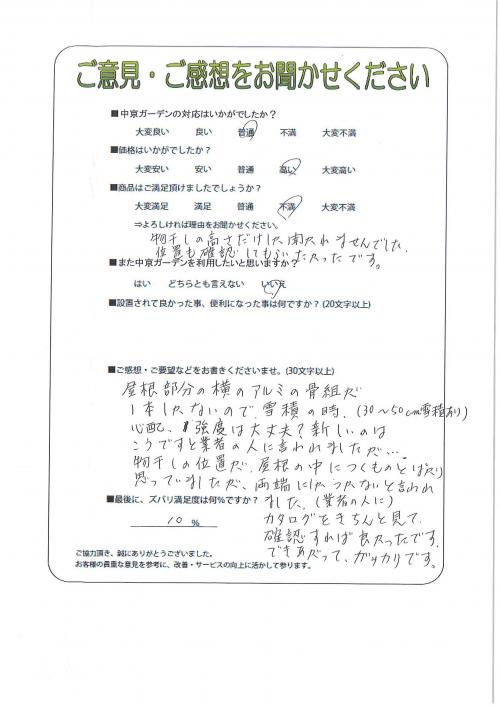 ご意見・ご感想をお聞かせください
■中京ガーデンの対応はいかがでしたか？
大変良い 良い 普通 不満 大変不満
■価格はいかがでしたか？
大変安い 安い 普通 高い 大変高い
■商品はご満足頂けましてでしょうか？
大変満足 満足 普通 不満 大変不満
⇒よろしければ理由をお聞かせください。
物干しの高さだけしか聞かれませんでした。
位置も確認してもらいたかったです。
■また中京ガーデンを利用したいと思いますか？
はい どちらとも言えない いいえ
■設置されて良かった事、便利になった事は何ですか？(20文字以上)
■ご感想・ご要望などをお書きくださいませ。(30文字以上)
屋根部分の横のアルミの骨組が
1本しかないので、雪積の時、(30～50cm雪積あり)
心配、強度は大丈夫？新しいのは
こうですと業者の人に言われましたが…
物干しの位置が、屋根の中につくものとばかり
思っていましたが、両端にしかつかないと言われ
ました。(業者の人に)
■最後に、ズバリ満足度は何％ですか？
10 %
カタログをきちんと見て、
確認すれば良かったです。
できあがって、ガッカリです。
ご協力頂き、誠にありがとうございました。
お客様の貴重な意見を参考に、改善・サービスの向上に活かして参ります。